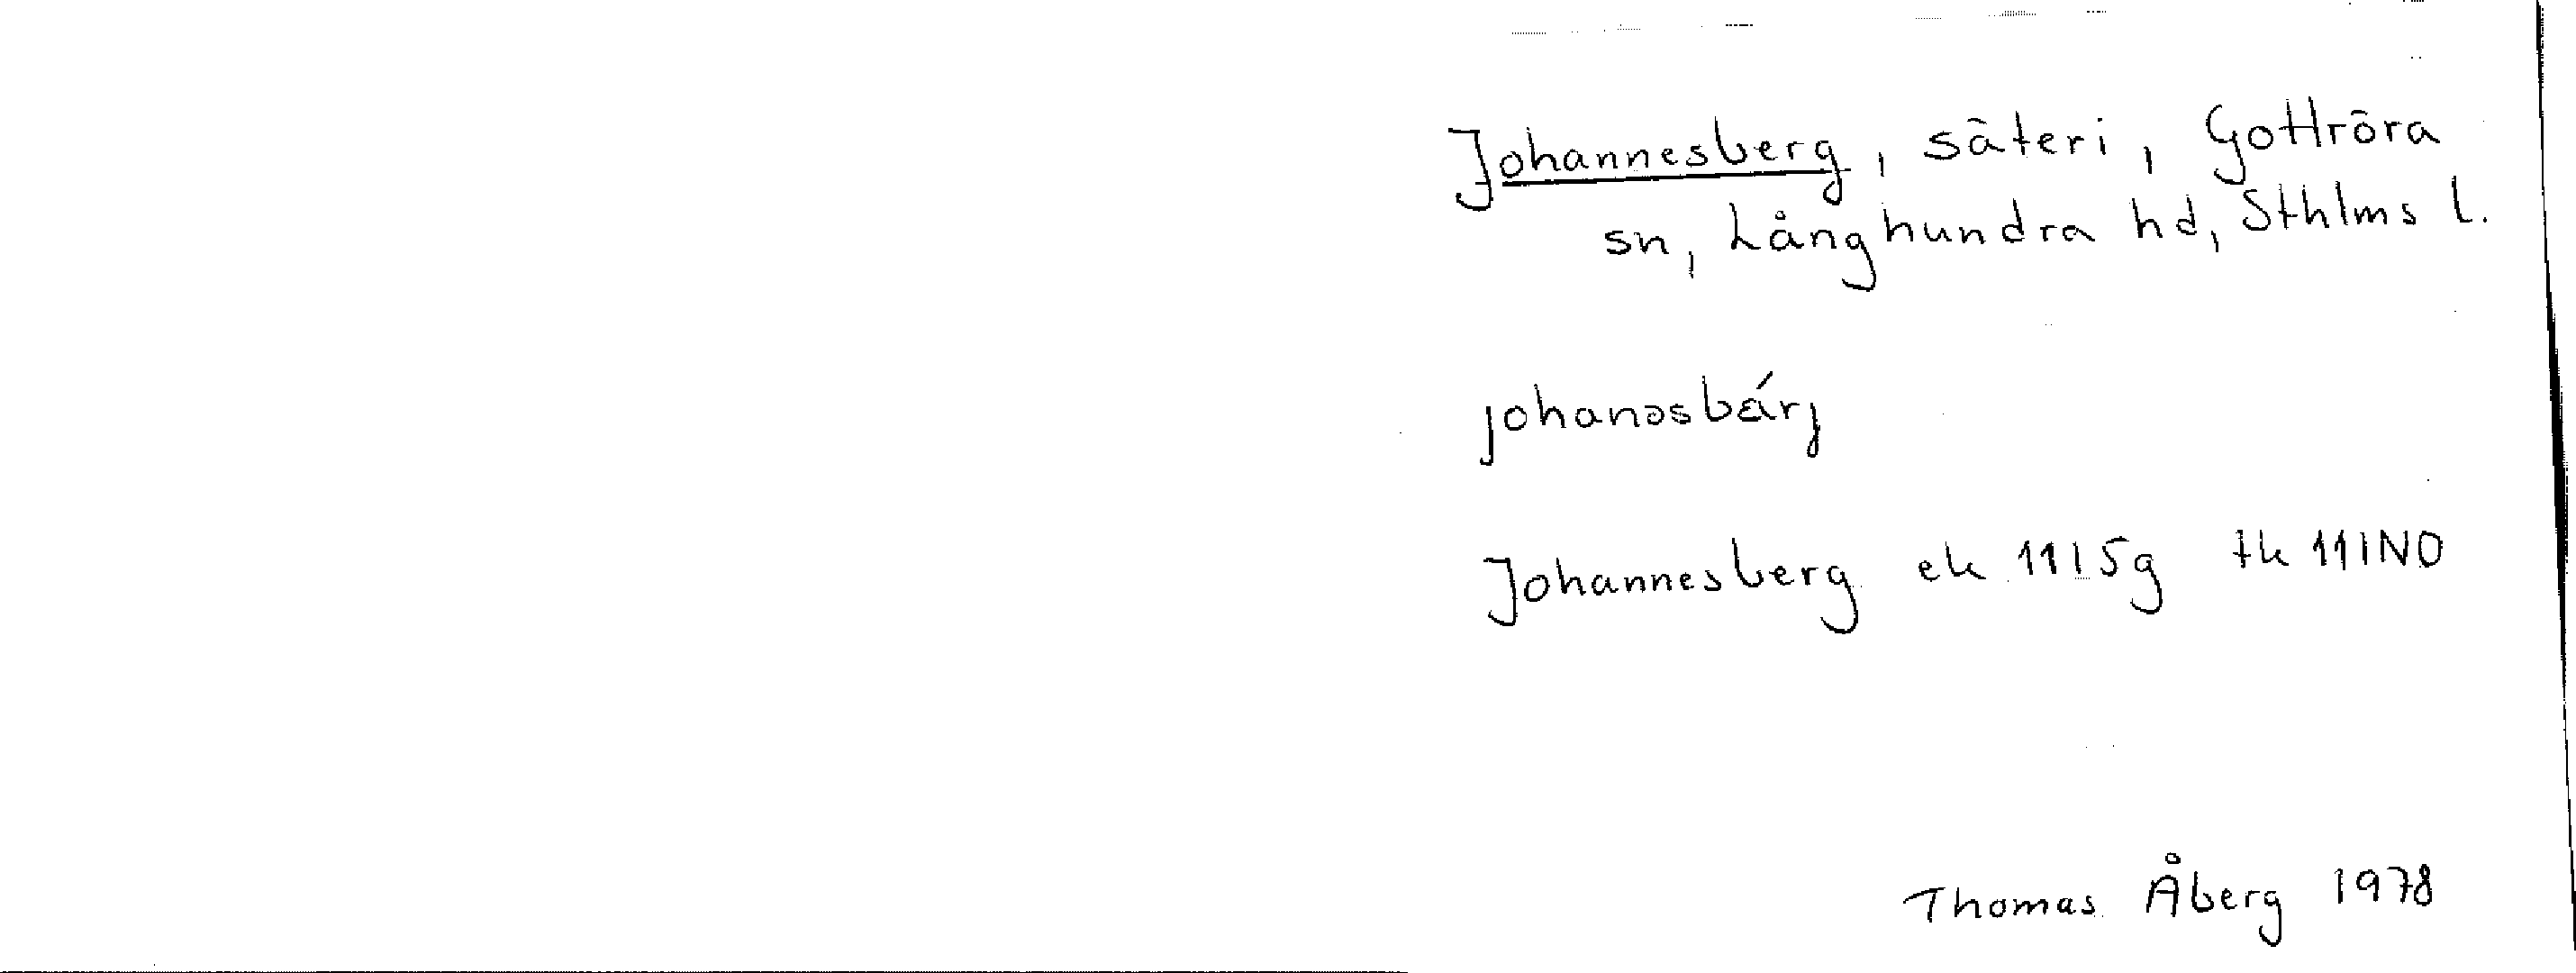 Johannesberg, säteri, Gottröra
sn, Långhundra hd, Sthlms l.
johanəsbǽrj
Johannesberg ek 11I5g tk 11INO
Thomas Åberg 1978